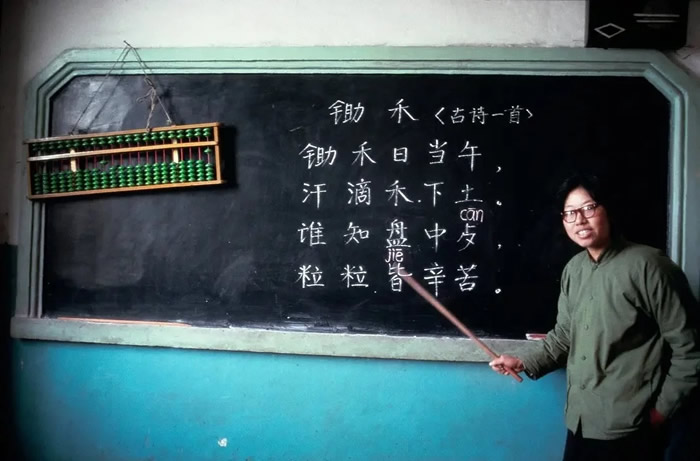 锄禾〈古诗一首〉
锄禾日当午，
汗滴禾下土。
cān
谁知盘中歺，
jiē
粒粒皆辛苦。